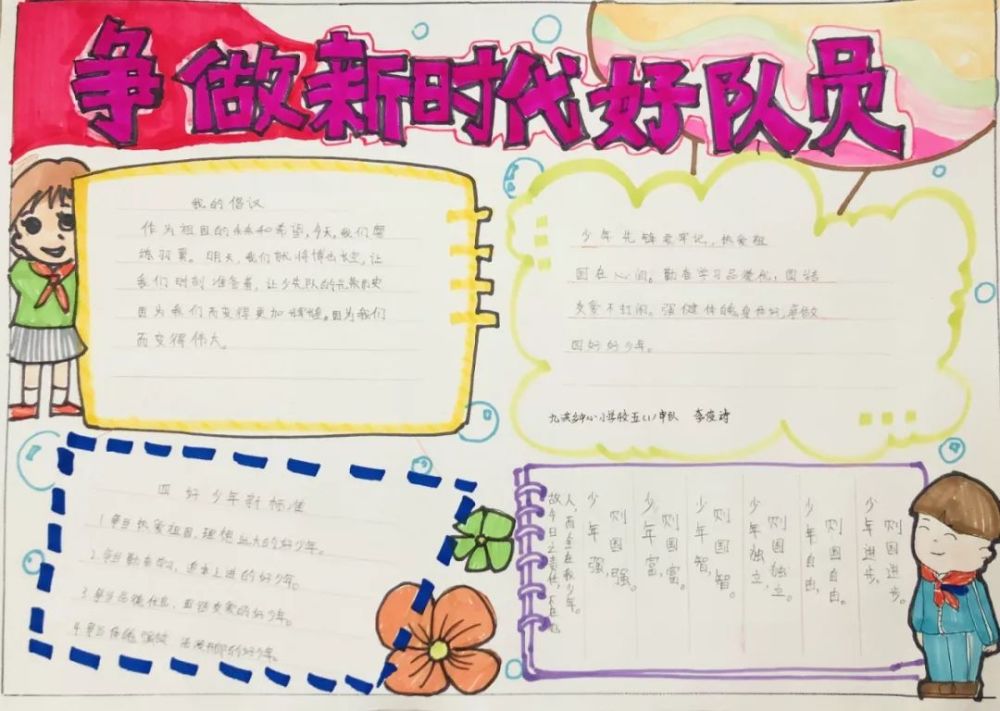 争做新时代好队员
我的倡议
作为祖国的未来和希望,今天,我们磨
练羽翼。明天,我们就将搏击长空,让
我们时刻准备着,让少先队的历史
因为我们而变得更加辉煌。因为我们
而变得伟大。
少年先锋要牢记,热爱祖
国在心间。勤奋学习品德优,团结
友爱不打闹。强健体魄身体好,争做
四好好少年。
九 中心小学校五(1)中队 李俊诗
四好少年新标准
1.争当热爱祖国、理想远大的好少年。
2.争当勤奋学习、追求上进的好少年。
3.争当品德优良、团结友爱的好少年。
4.争当体魄强健 活泼开朗的好少年。
故今日之责任,不在他
人,而全在我少年。
少年强,
则国强。
少年富,
则国富。
少年智,
则国智。
少年独立,
则国独立。
少年自由,
则国自由。
少年进步,
则国进步。